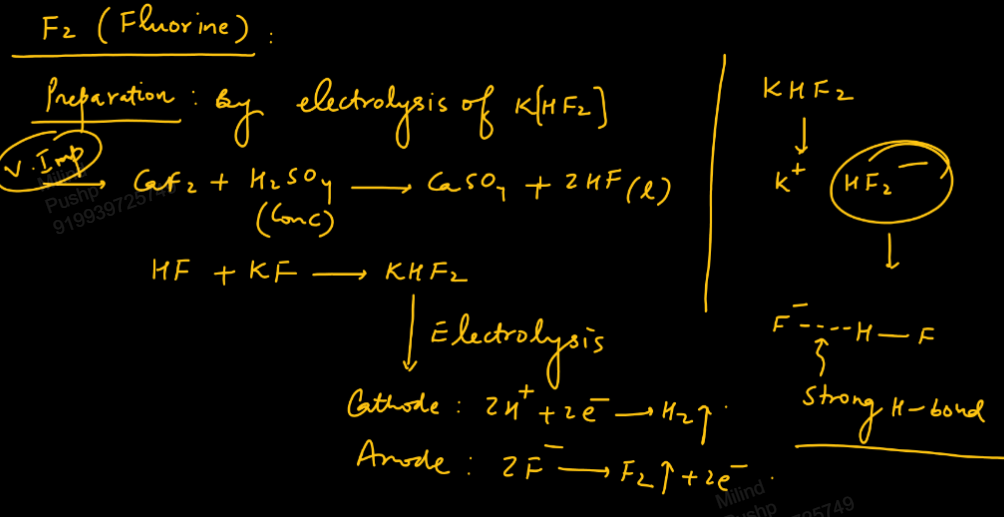 F₂ (Fluorine) :
Preparation : By electrolysis of K[HF₂]
V. Imp
CaF₂ + H₂SO₄ (Conc) ⟶ CaSO₄ + 2HF (l)
HF + KF ⟶ KHF₂
↓ Electrolysis
Cathode : 2H⁺ + 2e⁻ ⟶ H₂↑
Anode : 2F⁻ ⟶ F₂↑ + 2e⁻
KHF₂
↓
K⁺ HF₂⁻
↓
F⁻----H—F
Strong H-bond
Milind
Pushp
Milind
Pushp